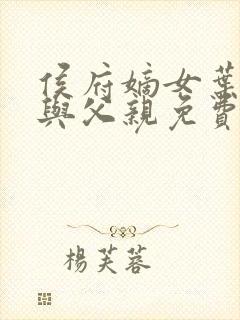 侯府嫡女葉
與父親免費
楊芙蓉